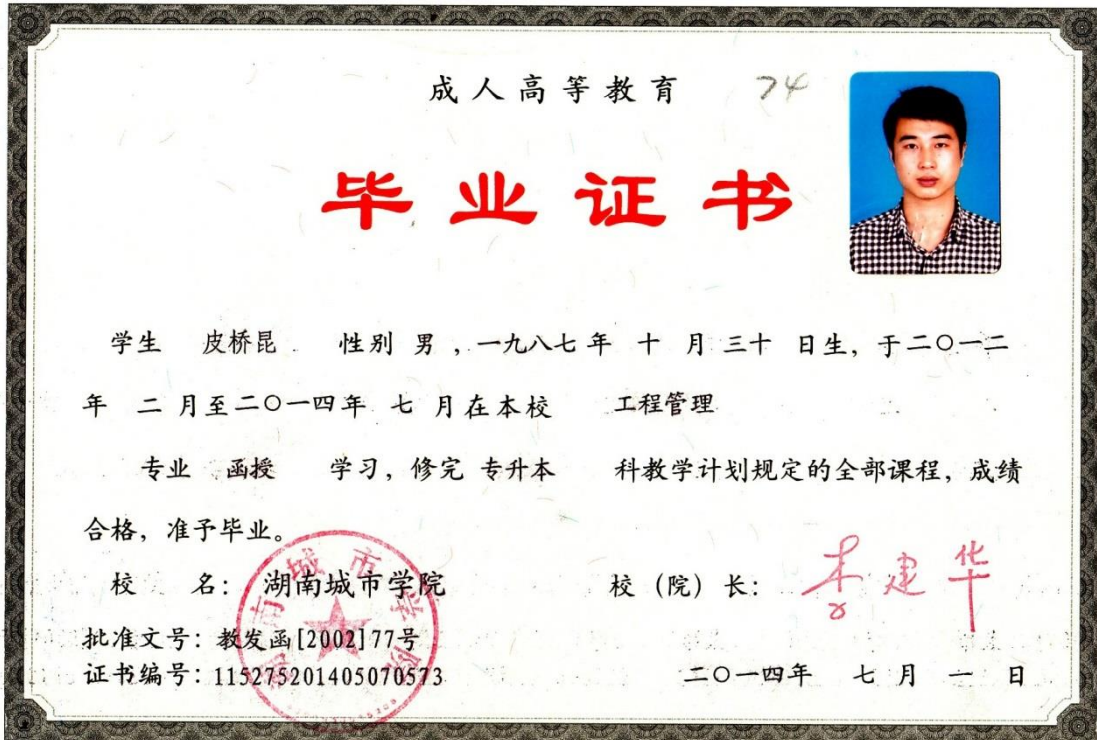 成人高等教育 74
毕业证书
学生 皮桥昆 性别 男 , 一九八七年 十 月 三十 日生, 于二〇一二
年 二 月至二〇一四年 七 月在本校 工程管理
专业 函授 学习, 修完 专升本 科教学计划规定的全部课程, 成绩
合格, 准予毕业。
校 名: 湖南城市学院 校（院）长: 李建华
批准文号: 教发函[2002]77号
证书编号: 115275201405070573
二〇一四年 七 月 一 日
湖南城市学院